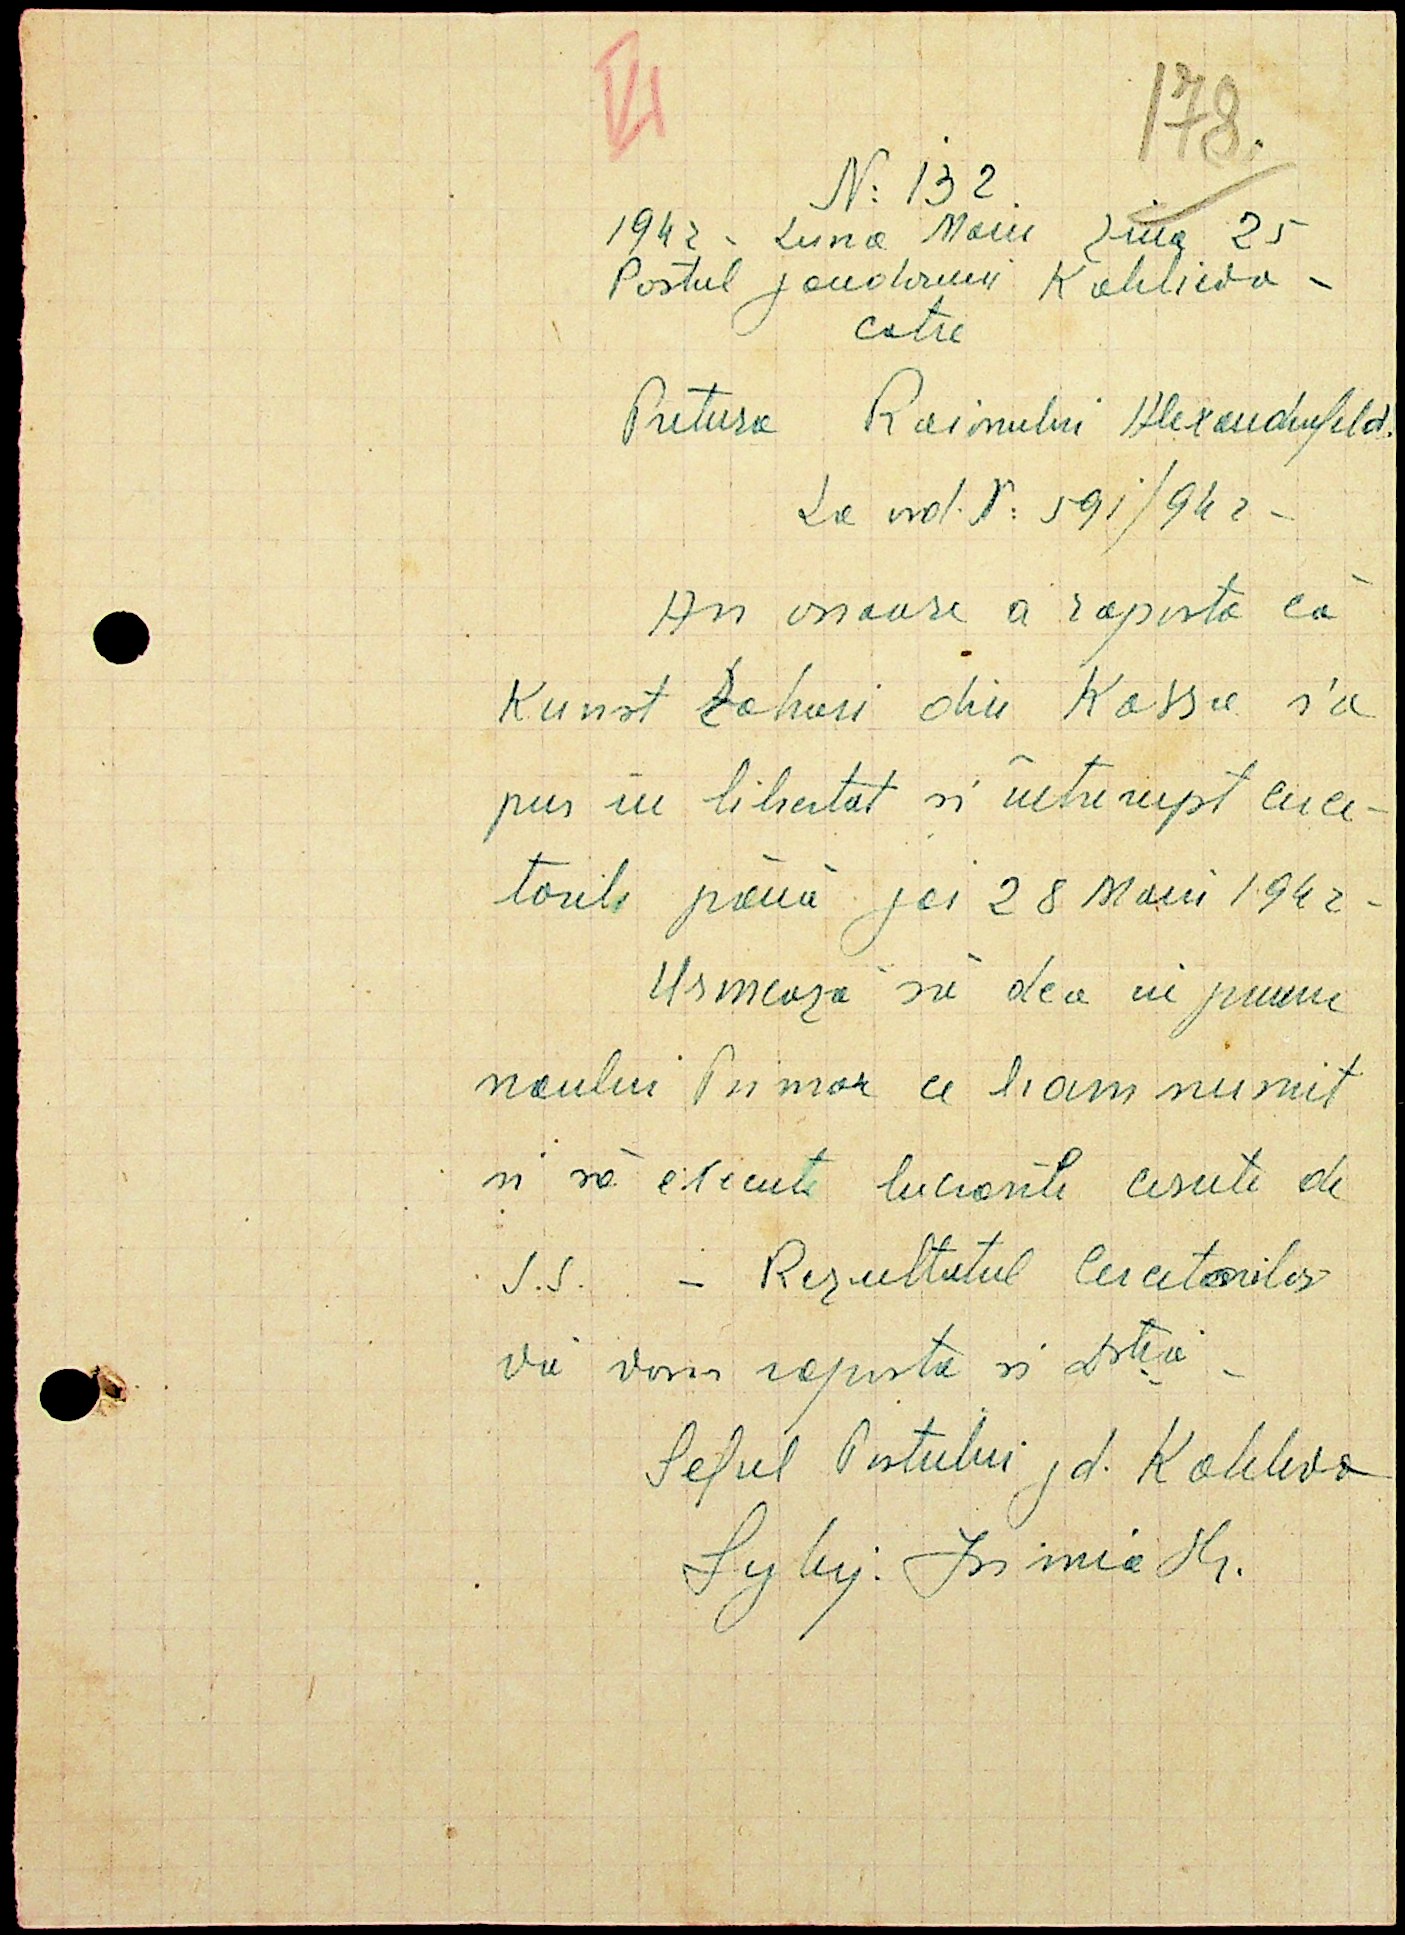 VI
178.
N: 132
1942 - Luna Maiu ziua 25
Postul jandarmi Kahlieva -
catre
Pretura Raionului Alexanderfeld.
La ord. N: 591/942 -
Am onoare a raporta că
Kunst Zahari din Kassa s'a
pus in libertat si întrerupt cerce-
tarile până joi 28 Maiu 1942 -
Urmează să dea in primire
noului Primar ce l-am numit
si să execute lucrările cerute de
S.S. - Rezultatul Cercetarilor
vă vom raporta si Dstră -
Seful Postului jd. Kahleva
Irimia